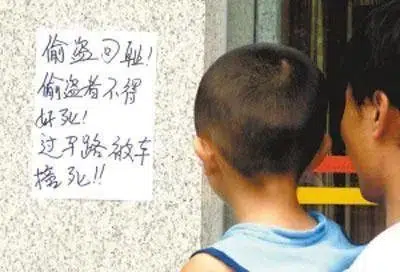 偷盗可耻!
偷盗者不得
好死!
过马路被车
撞死!!